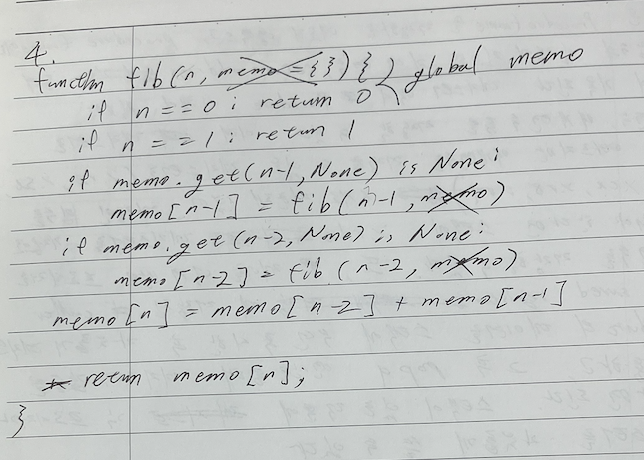 4.
function fib(n, memo = {}) { global memo
if n == 0 : return 0
if n == 1 : return 1
if memo.get(n-1, None) is None :
memo[n-1] = fib(n-1, memo)
if memo.get(n-2, None) is None :
memo[n-2] = fib(n-2, memo)
memo[n] = memo[n-2] + memo[n-1]
retun memo[n];
}